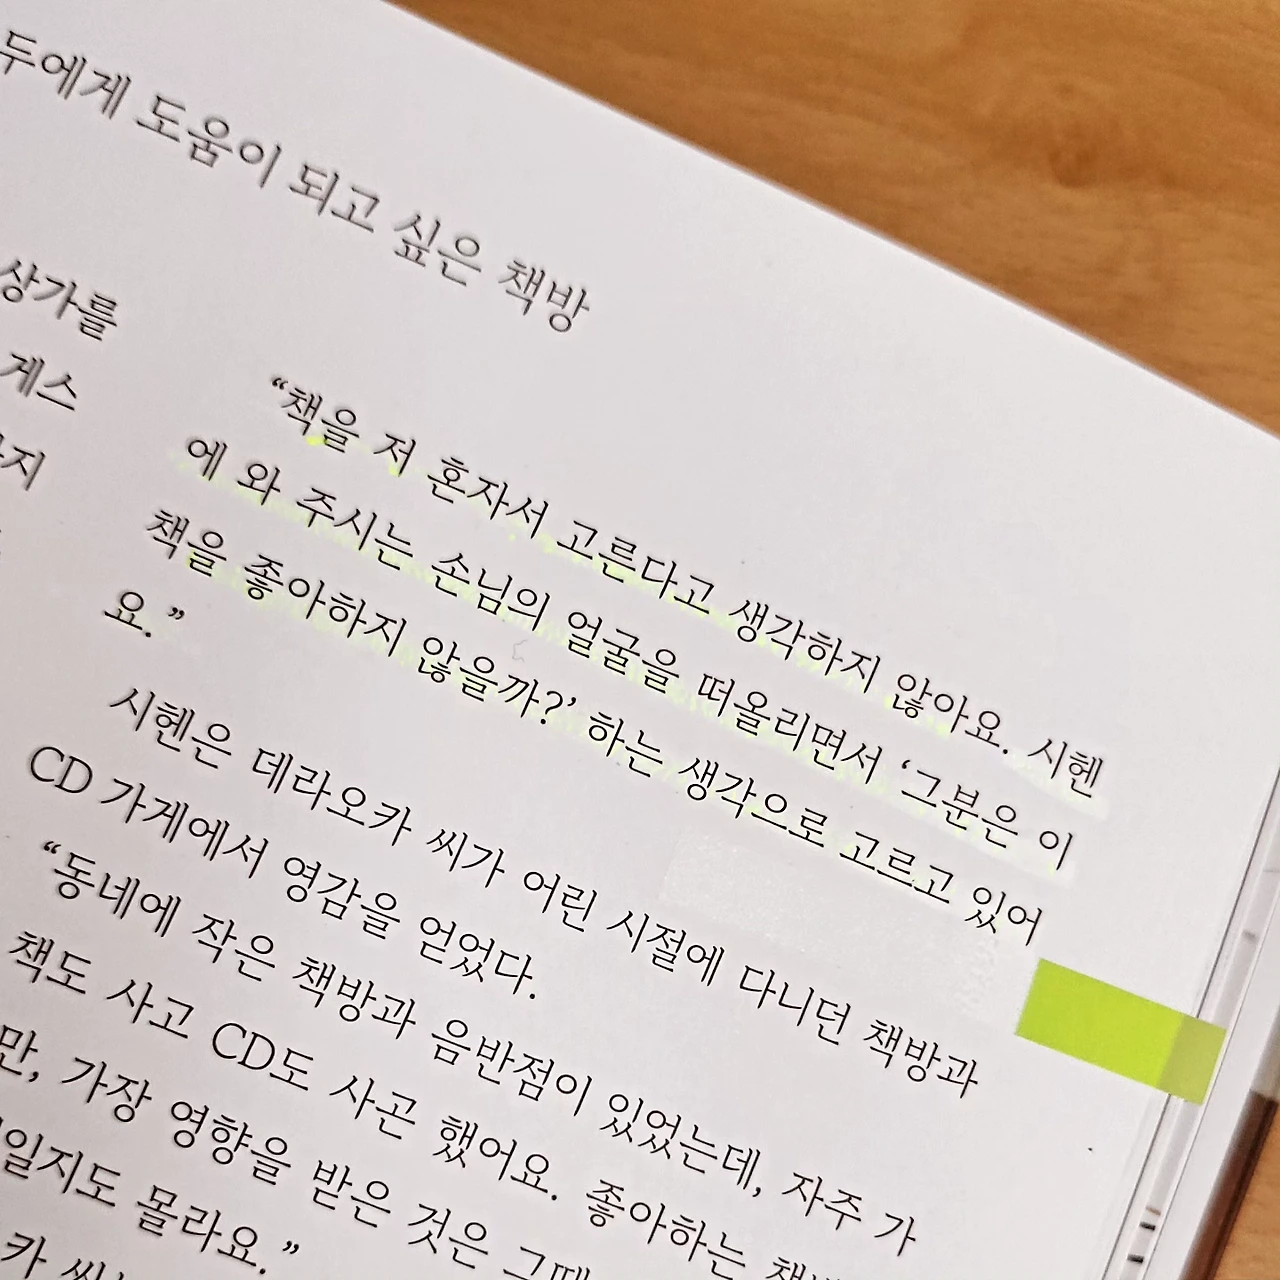 두에게 도움이 되고 싶은 책방
상가를
게스
지
“책을 저 혼자서 고른다고 생각하지 않아요. 시헨
에 와 주시는 손님의 얼굴을 떠올리면서 ‘그분은 이
책을 좋아하지 않을까?’ 하는 생각으로 고르고 있어
요.”
시헨은 데라오카 씨가 어린 시절에 다니던 책방과
CD 가게에서 영감을 얻었다.
“동네에 작은 책방과 음반점이 있었는데, 자주 가
책도 사고 CD도 사곤 했어요. 좋아하는
만, 가장 영향을 받은 것은 그때
일지도 몰라요.”
카